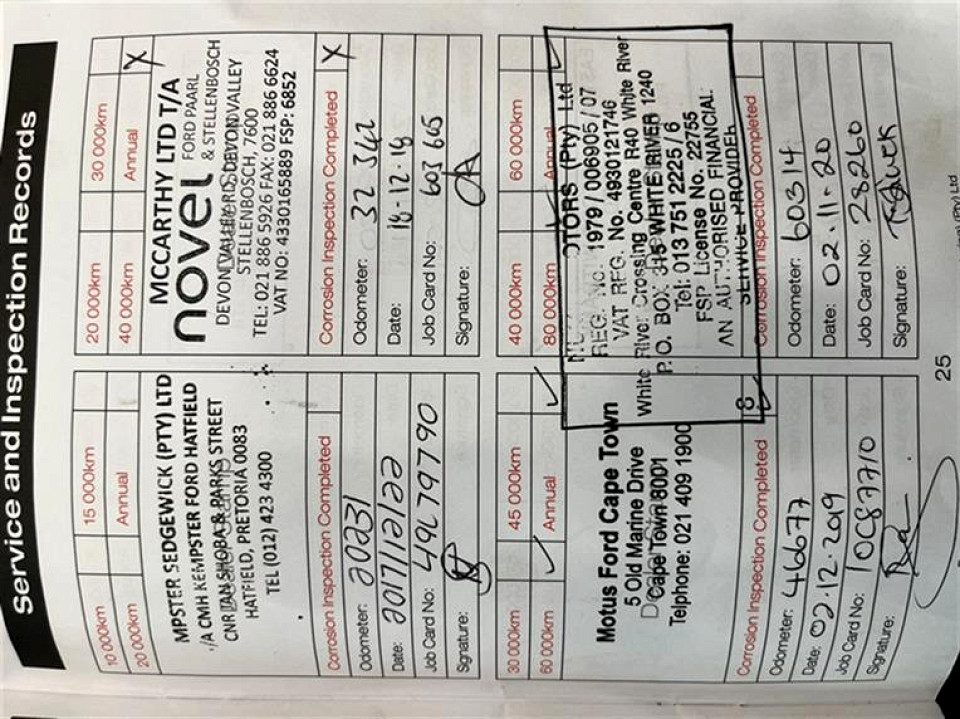 Service and Inspection Records
10 000km 15 000km
20 000km Annual
MPSTER SEDGEWICK (PTY) LTD
/A CMH KEMPSTER FORD HATFIELD
CNR JAN SHOBA & PARKS STREET
HATFIELD, PRETORIA 0083
TEL (012) 423 4300
Corrosion Inspection Completed
Odometer: 20231
Date: 2017/12/22
Job Card No: 49L79790
Signature:
20 000km 30 000km
40 000km Annual X
MCCARTHY LTD T/A
novel FORD PAARL
& STELLENBOSCH
DEVON VALLEY RD, DEVON VALLEY
STELLENBOSCH, 7600
TEL: 021 886 5926 FAX: 021 886 6624
VAT NO: 4330165889 FSP: 6852
Corrosion Inspection Completed X
Odometer: 32 342
Date: 18-12-18
Job Card No: 603 665
Signature:
30 000km 45 000km
60 000km ✓ Annual ✓
Motus Ford Cape Town
5 Old Marine Drive
Cape Town 8001
Telphone: 021 409 1900
Corrosion Inspection Completed
Odometer: 46677
Date: 02.12.2019
Job Card No: 10C87710
Signature:
40 000km 60 000km
80 000km Annual ✓
OTORS (Pty) Ltd
REG. No. 1979 / 0006905 / 07
VAT REG. No. 4930121746
White River Crossing Centre R40 White River
P.O. BOX 315 WHITE RIVER 1240
Tel: 013 751 2225 / 6
FSP License No. 22755
AN AUTHORISED FINANCIAL
SERVICE PROVIDER
Corrosion Inspection Completed
Odometer: 60314
Date: 02-11-20
Job Card No: 28260
Signature:
25